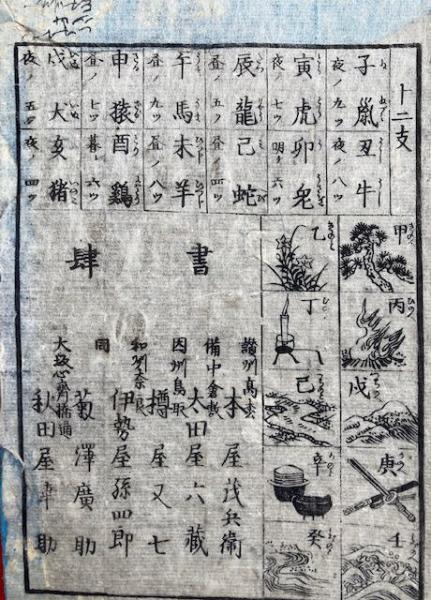 十二支
子 鼠 丑 牛
夜ノ九ツ 夜ノ八ツ
寅 虎 卯 兎
夜ノ七ツ 明ケ六ツ
辰 龍 巳 蛇
昼ノ 昼ノ四ツ
午 馬 未 羊
昼ノ九ツ 昼ノ八ツ
申 猿 酉 鶏
昼ノ七ツ 暮レ六ツ
戌 犬 亥 猪
夜ノ五ツ 夜ノ四ツ
甲 きのへ
乙 きのと
丙 ひのへ
丁 ひのと
戊
己
庚
辛
壬
癸
書肆
讃州高松 本屋茂兵衛
備中倉敷 太田屋六蔵
因州鳥取 樽屋又七
和州奈良 伊勢屋孫四郎
同 菊澤廣助
大坂心斎橋通 秋田屋幸助